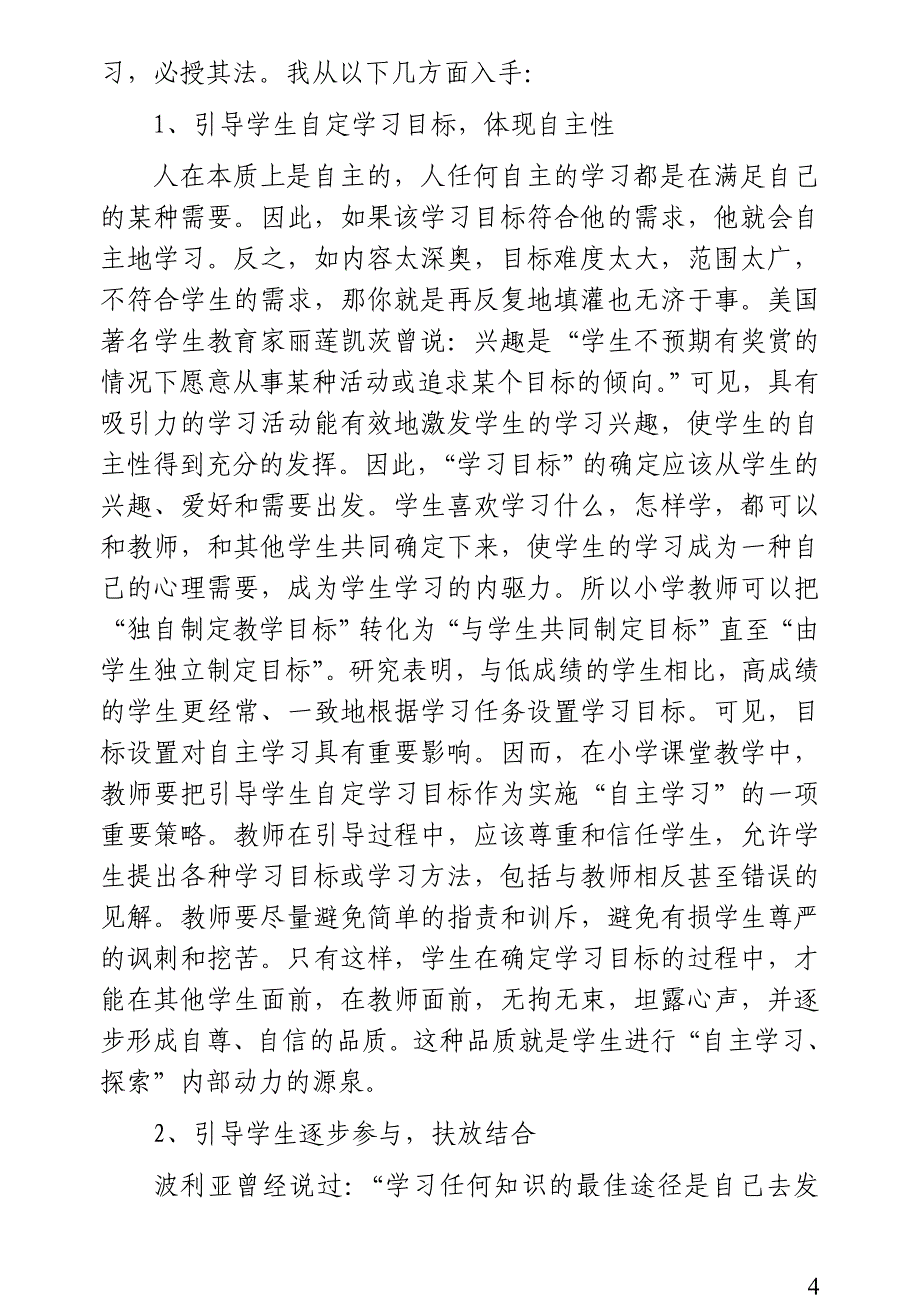 习，必授其法。我从以下几方面入手：
1、引导学生自定学习目标，体现自主性
人在本质上是自主的，人任何自主的学习都是在满足自己
的某种需要。因此，如果该学习目标符合他的需求，他就会自
主地学习。反之，如内容太深奥，目标难度太大，范围太广，
不符合学生的需求，那你就是再反复地填灌也无济于事。美国
著名学生教育家丽莲凯茨曾说：兴趣是“学生不预期有奖赏的
情况下愿意从事某种活动或追求某个目标的倾向。”可见，具有
吸引力的学习活动能有效地激发学生的学习兴趣，使学生的自
主性得到充分的发挥。因此，“学习目标”的确定应该从学生的
兴趣、爱好和需要出发。学生喜欢学习什么，怎样学，都可以
和教师，和其他学生共同确定下来，使学生的学习成为一种自
己的心理需要，成为学生学习的内驱力。所以小学教师可以把
“独自制定教学目标”转化为“与学生共同制定目标”直至“由
学生独立制定目标”。研究表明，与低成绩的学生相比，高成绩
的学生更经常、一致地根据学习任务设置学习目标。可见，目
标设置对自主学习具有重要影响。因而，在小学课堂教学中，
教师要把引导学生自定学习目标作为实施“自主学习”的一项
重要策略。教师在引导过程中，应该尊重和信任学生，允许学
生提出各种学习目标或学习方法，包括与教师相反甚至错误的
见解。教师要尽量避免简单的指责和训斥，避免有损学生尊严
的讽刺和挖苦。只有这样，学生在确定学习目标的过程中，才
能在其他学生面前，在教师面前，无拘无束，坦露心声，并逐
步形成自尊、自信的品质。这种品质就是学生进行“自主学习、
探索”内部动力的源泉。
2、引导学生逐步参与，扶放结合
波利亚曾经说过：“学习任何知识的最佳途径是自己去发
4